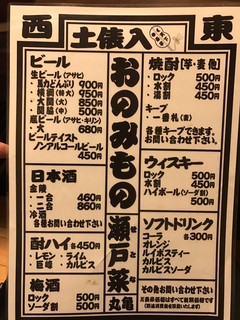 西 土俵入 東
おのみもの
瀬戸菜
せとな
丸亀
ビール
生ビール(アサヒ)
・黒力どんぶり 900円
・横綱(特大) 950円
・大関(大) 850円
・関脇(中) 500円
瓶ビール(アサヒ・キリン)
・大 680円
ビールテイスト
ノンアルコールビール
450円
日本酒
金陵
・一合 460円
・二合 860円
冷酒
各種お問い合わせ下さい
酎ハイ 各450円
・レモン ・ライム
・巨峰 ・カルピス
梅酒
ロック 500円
ソーダ割 500円
焼酎【芋・麦 他】
・ロック 500円
・水割 450円
・湯割 450円
キープ
・一番札(麦)
各種キープできます。
お問い合わせ下さい。
ウィスキー
ロック 500円
水割 450円
ハイボール(ソーダ割)
500円
ソフトドリンク
コーラ 各300円
オレンジ
ルイボスティー
カルピス
カルピスソーダ
その他
各種お問い合わせ下さい。